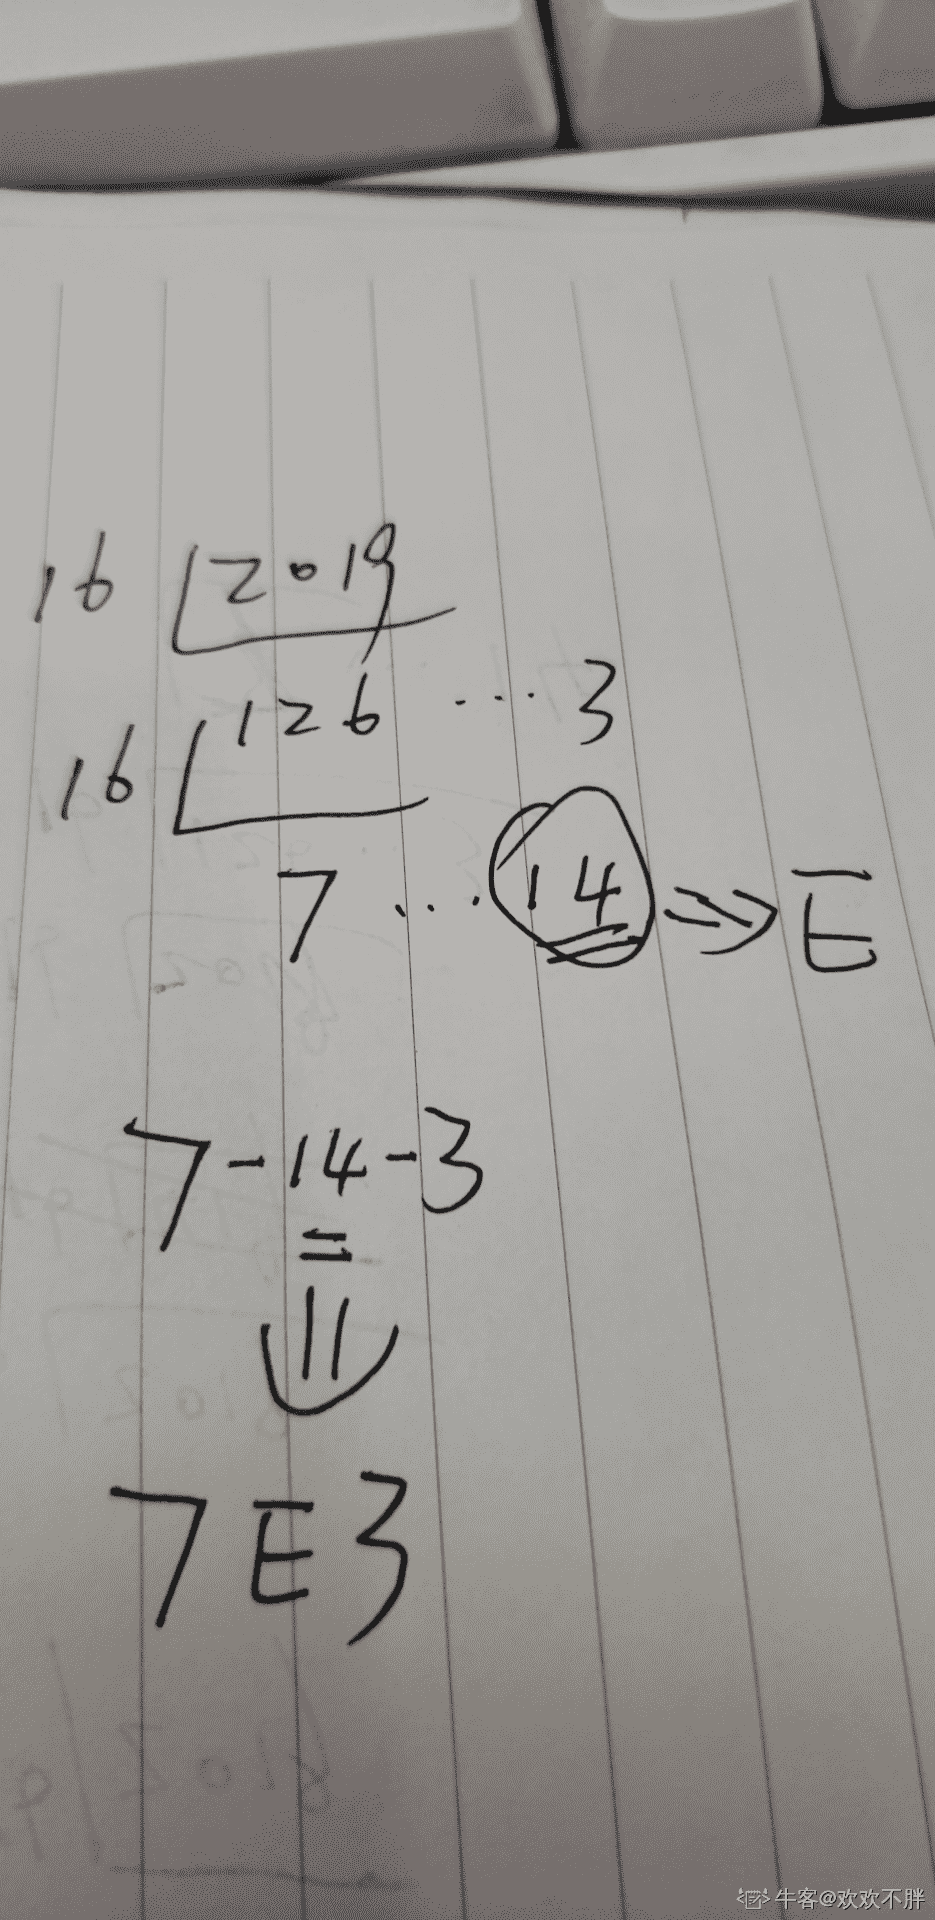 16 2019
16 126 ... 3
7 ... 14 => E
7-14-3
7E3
牛客@欢欢不胖